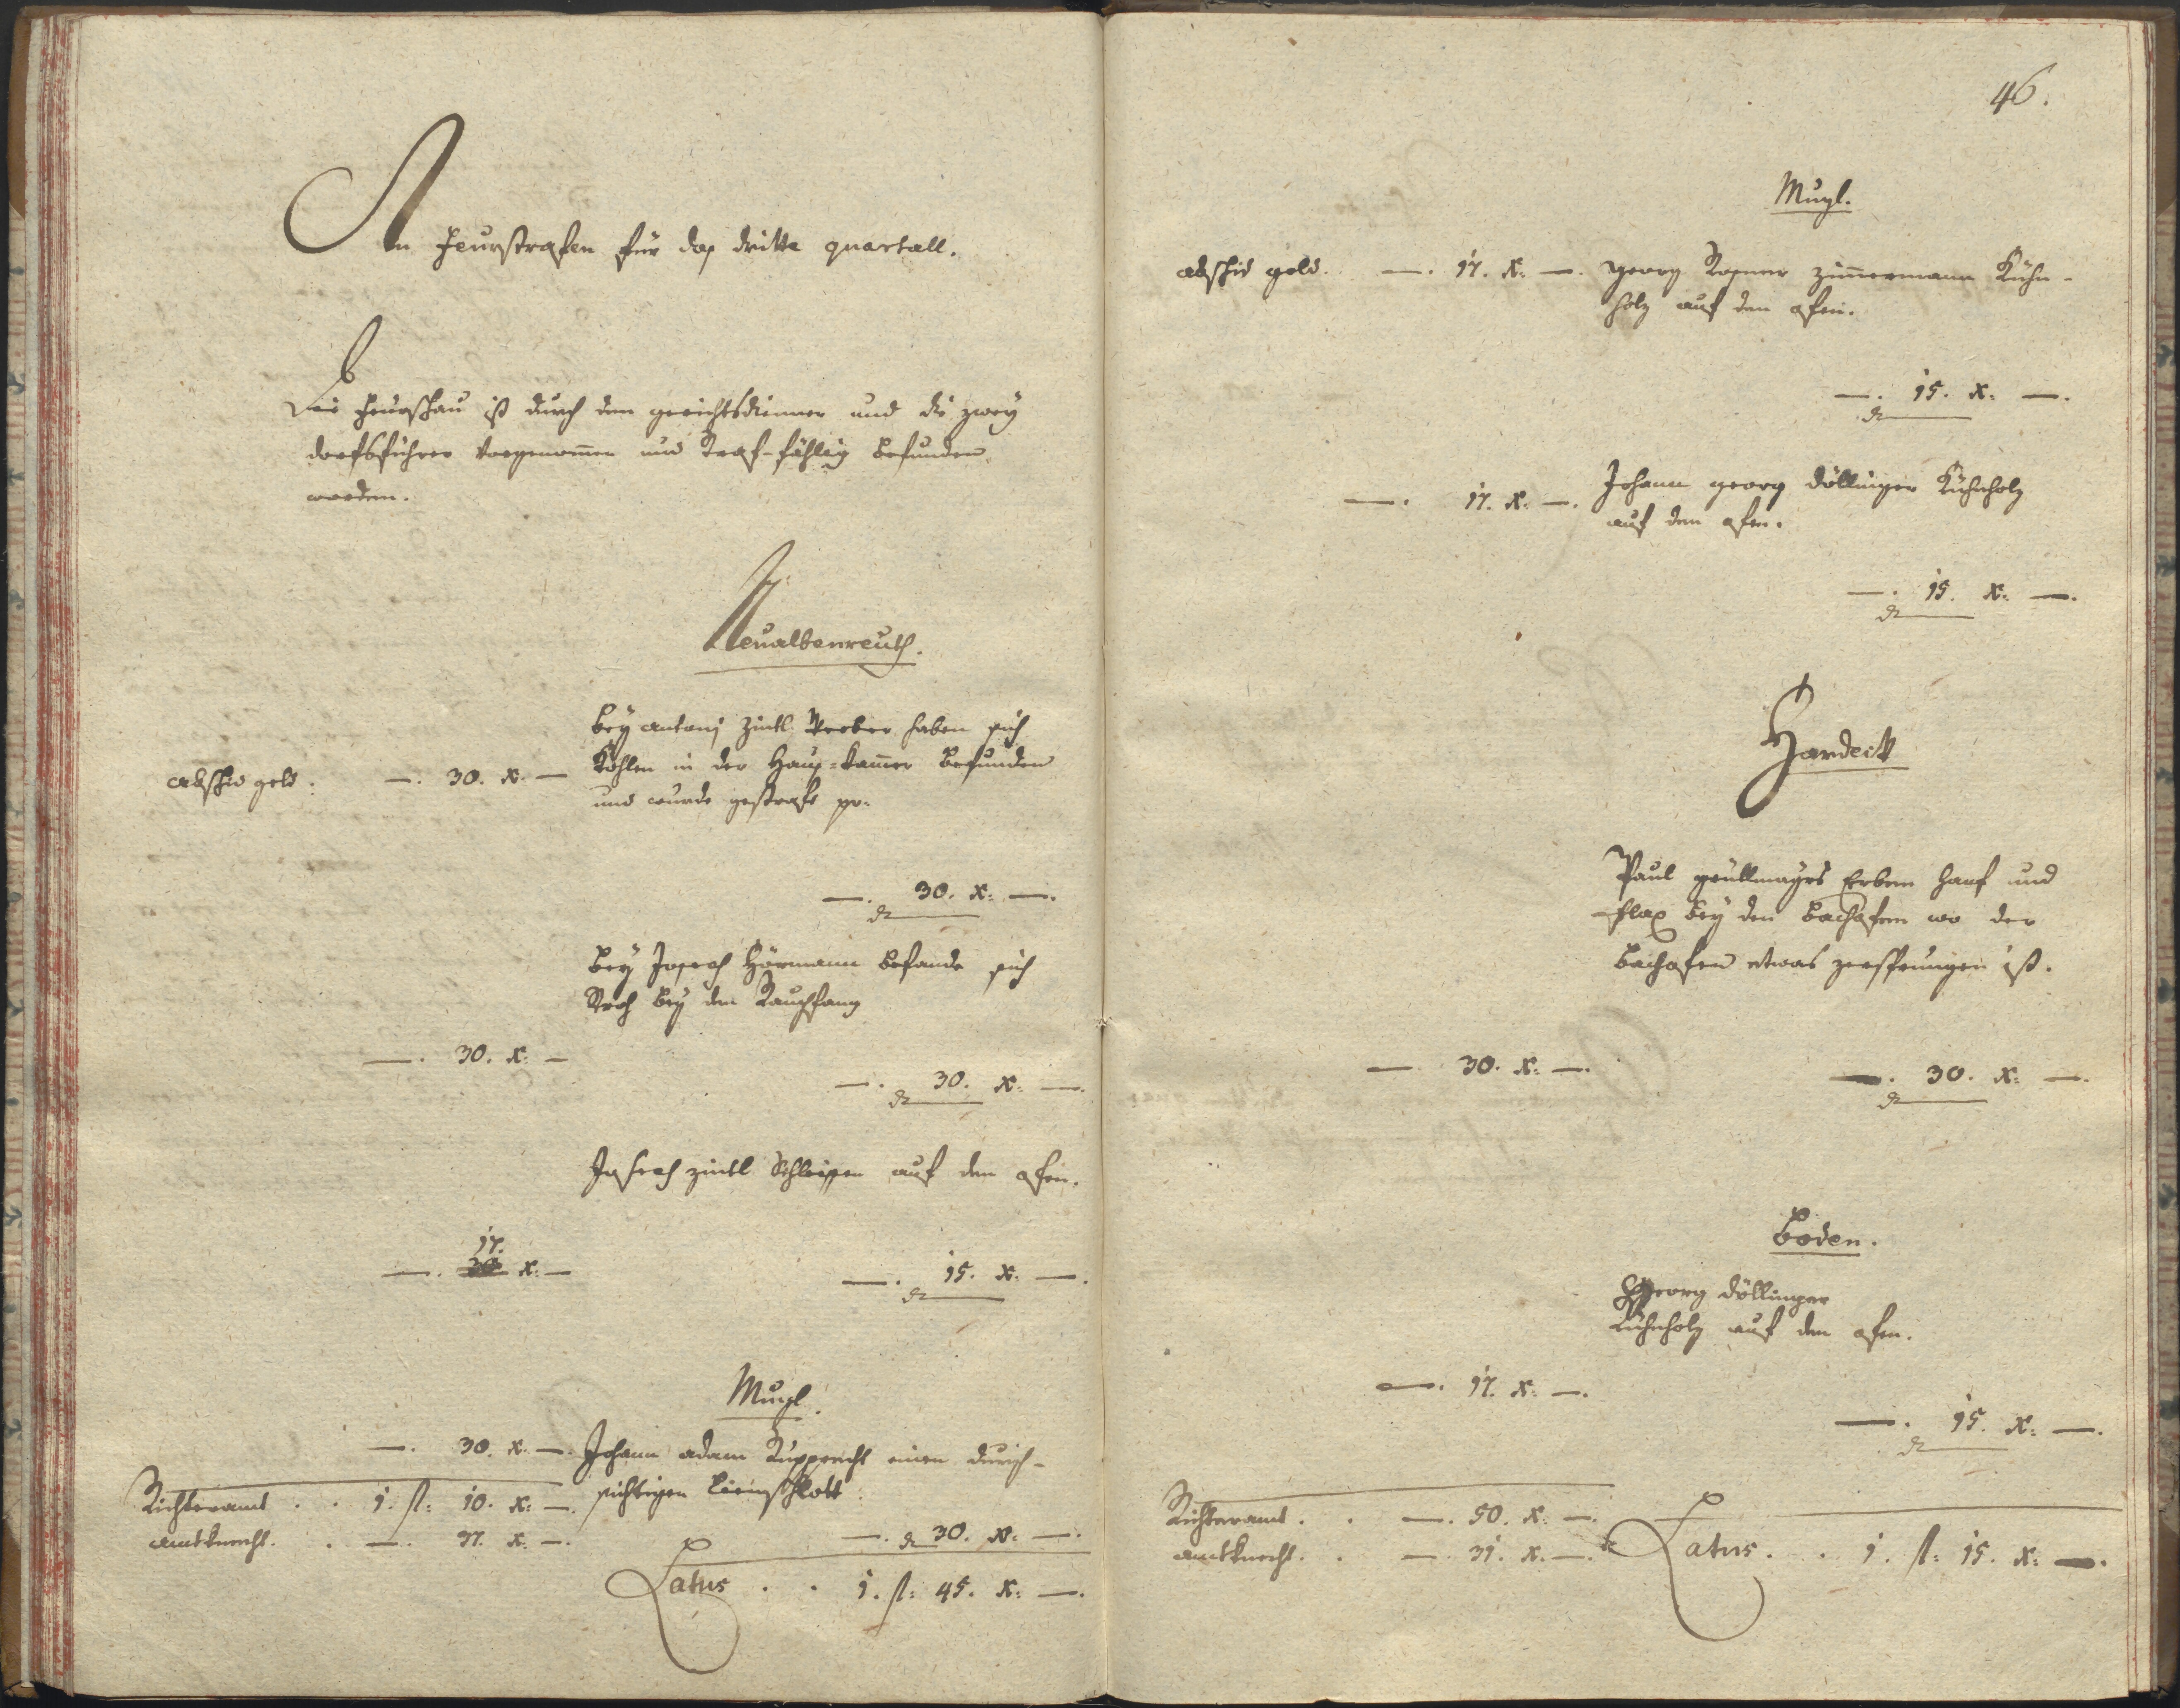 An Feurstrafen für das dritte quartall.
Die Feurschau ist durch den gerichtsdienner und die zwey
dorfsführer vorgenommen und Straf-fählig befunden
worden.
Neualbenreuth.
abschid geld: —. 30. x. —
bey antonj Zintl Weber haben sich
Kohlen in der Haus-kammer befunden
und wurde gestraft pr.
—. 30. x: —.
bey Joseph Hörmann befande sich
Stroh bey den Rauchfang
—. 30. x: —
—. 30. x: —.
Joseph zintl Schleissen auf den ofen.
—. 17. x: —
—. 15. x: —.
Mugl.
—. 30. x. —.
Johann adam Rupprecht einen durch-
sichtigen Schlott.
—. 30. x: —.
Richteramt . . 1. fl: 10. x: —.
amtknecht. . —. 37. x: —.
Latus . . 1. fl: 45. x: —.
46.
Mugl.
abschid geld. —. 17. x: —.
georg Rosner zimmermann Kühn-
holz auf den ofen.
—. 15. x: —.
—. 17. x: —.
Johann georg döllinger Kühnholz
auf den ofen.
—. 15. x: —.
Hardeck
Paul güllmayrs Erben Hanf und
flax bey den bachofen wo der
bachofen etwas zersprungen ist.
— 30. x: —.
—. 30. x: —.
Boden.
Georg döllinger
Kühnholz auf den ofen.
—. 17. x: —.
—. 15. x: —.
Richteramt. . —. 50. x. —.
amtknecht. . —. 31. x. —.
Latus. . 1. fl: 15. x: —.